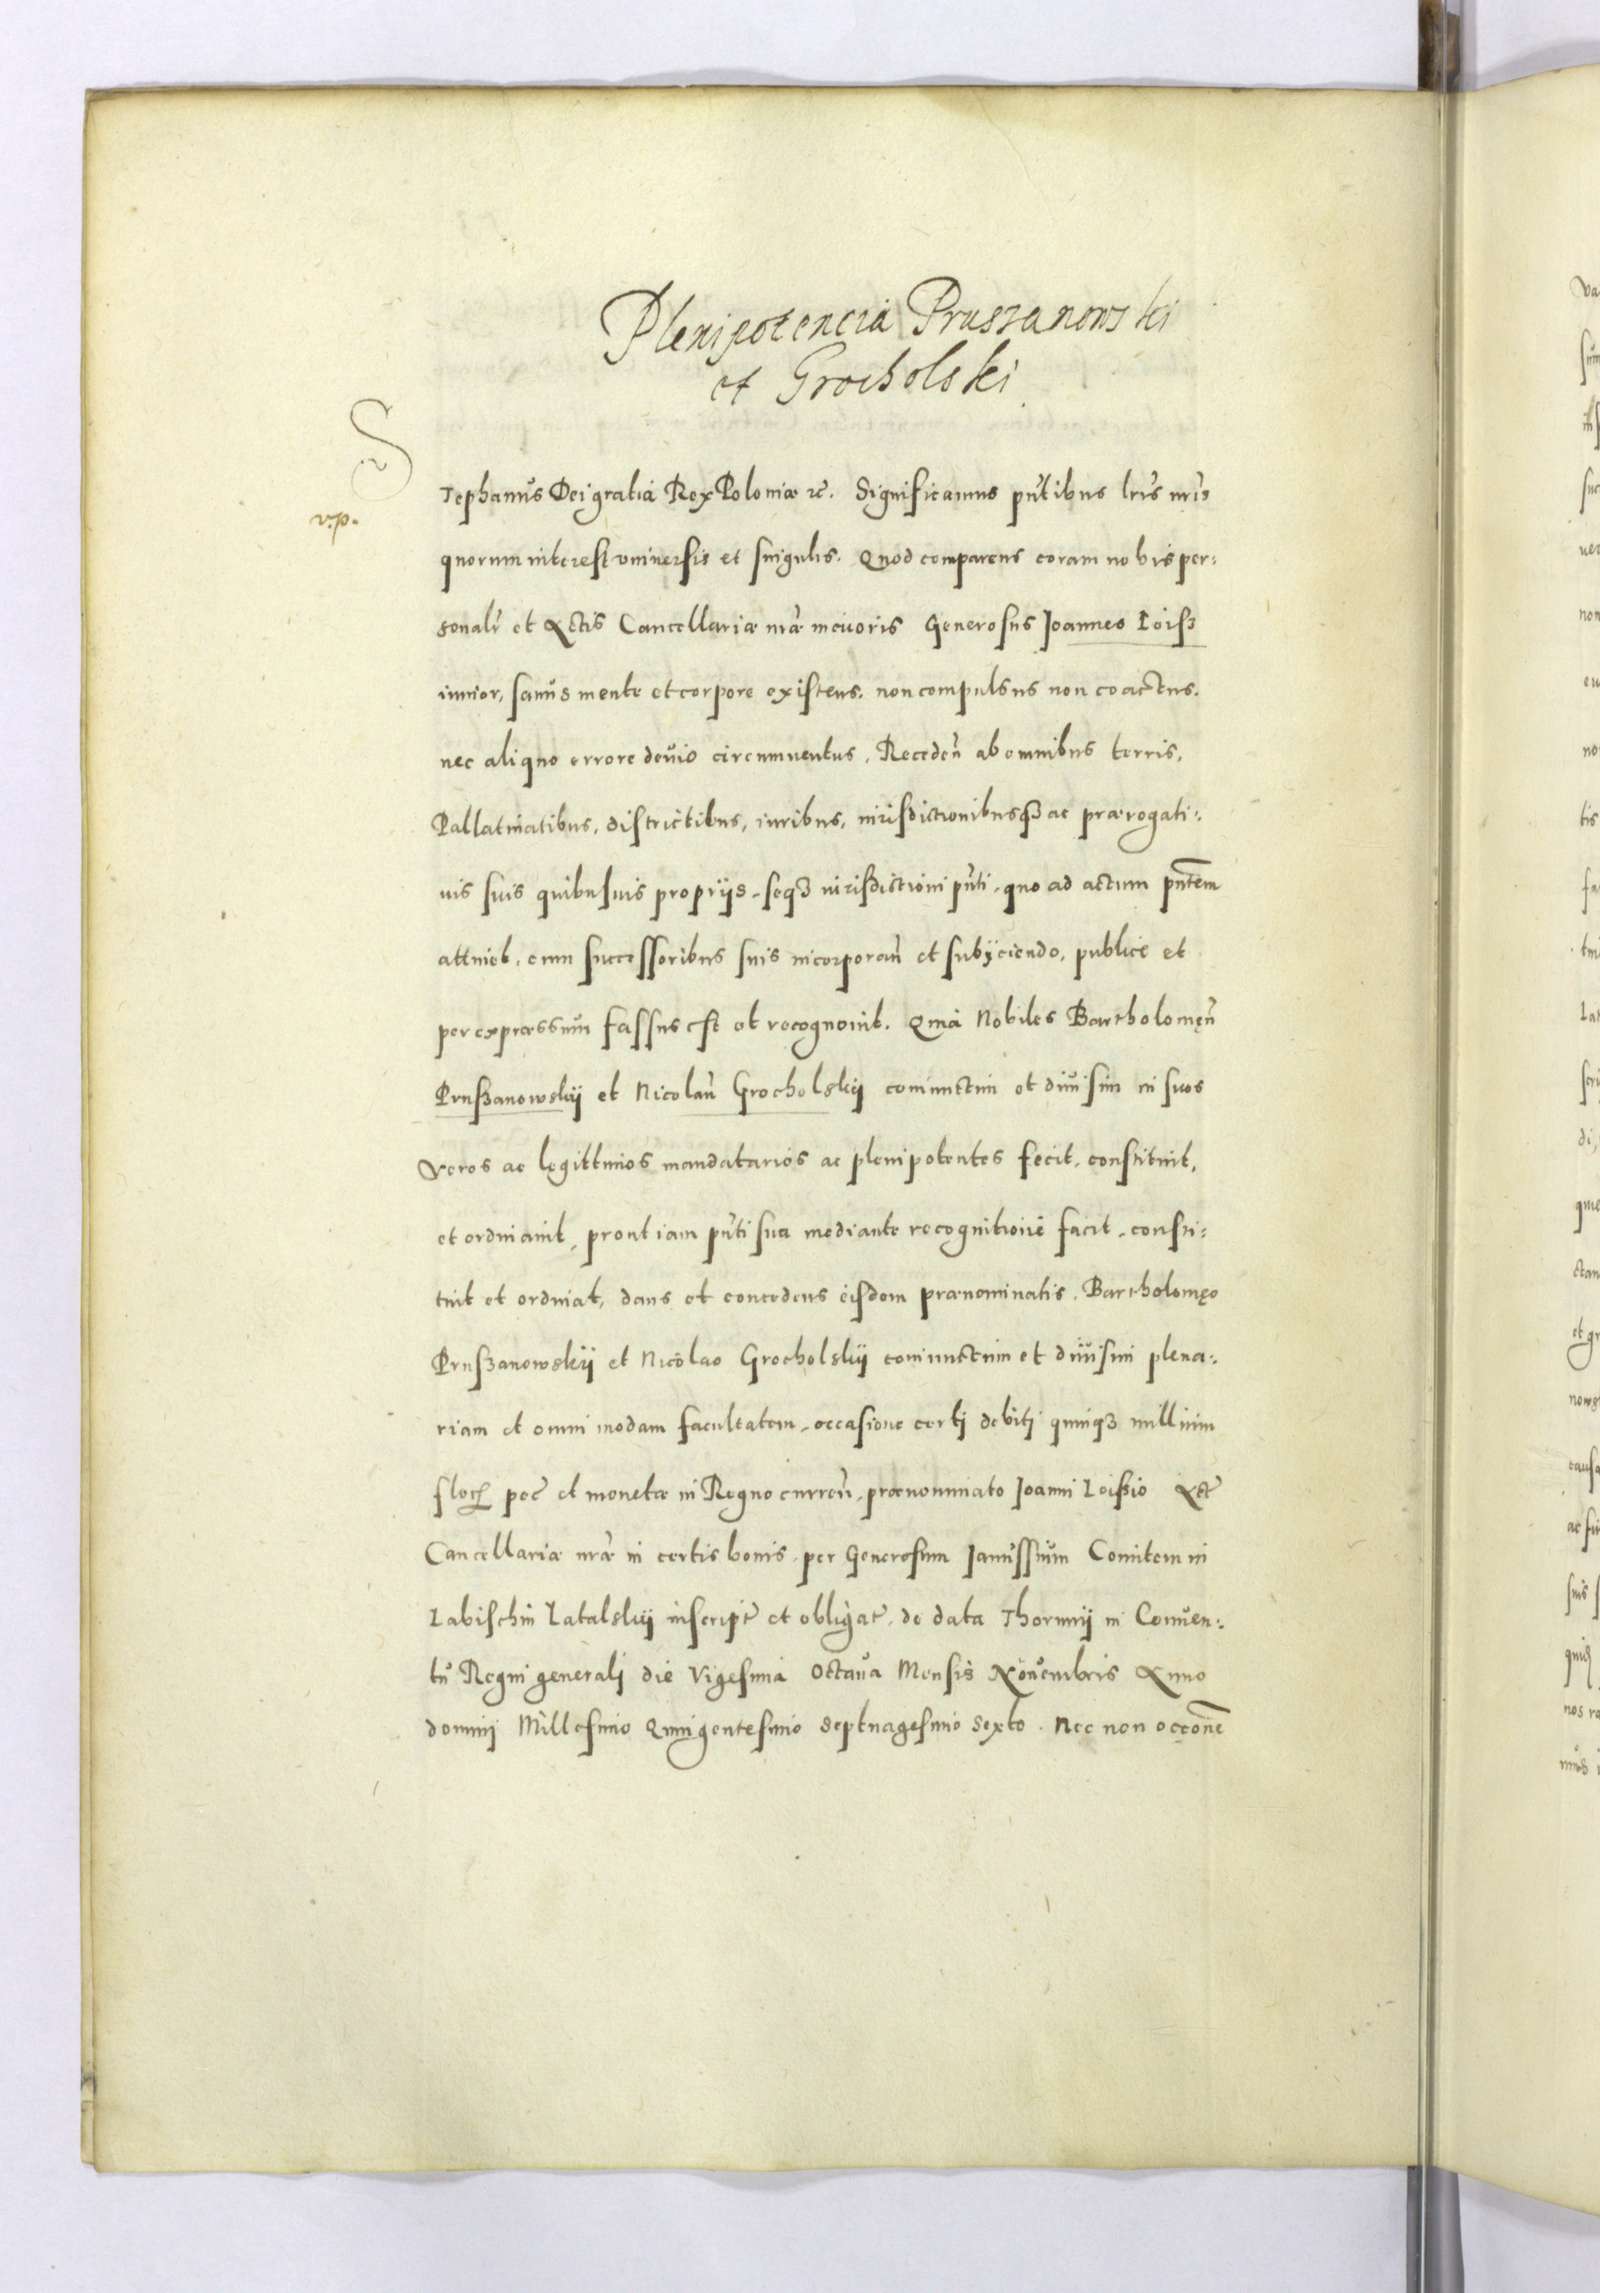 Plenipotencia Prussanowski
et Grocholski
Stephanus Dei gratia Rex Poloniæ ꝛc̃. Significamus pñtibus lris nris
quorum interest vniuersis et singulis. Quod comparens coram nobis per:
sonalr̃ et Actis Cancellariæ nræ maioris Generosus Joannes Loisz
v.p.
iunior, sanus mente et corpore existens. non compulsus non coactus.
nec aliquo errore deuio circumuentus. Recedeñ ab omnibus terris,
Pallatinatibus, districtibus, iuribus, iurisdictionibusqꝫ ac prærogati:
uis suis quibusuis proprijs, seqꝫ iurisdictioni pñti, quo ad actum pñtem
attinet, cum successoribus suis incorporañ et subijciendo, publice et
per expressum fassus est et recognouit. Quia Nobiles Bartholomęũ
Pruszanowskij et Nicolaũ Grocholskij coniunctim et diuisim in suos
veros ac legittimos mandatarios ac plenipotentes fecit, constituit,
et ordinauit, prout iam pñti sua mediante recognitione facit, consti:
tuit et ordinat, dans et concedens eisdem prænominatis, Bartholomęo
Pruszanowskij et Nicolao Grocholskij coniunctim et diuisim plena:
riam et omnimodam facultatem, occasione certj debitj quinqꝫ millium
floꝝ pec̃ et monetæ in Regno curreñ, prænominato Joanni Loiszio Act̃
Cancellariæ nræ in certis bonis, per Generosum Janussium Comitem in
Labischin Latalskij inscript̃ et obligat̃, de data Thorunij in Conuen:
tu Regni generalj die Vigesima octaua Mensis Nouembris Anno
dominj Millesimo Quingentesimo Septuagesimo Sexto. Nec non occone